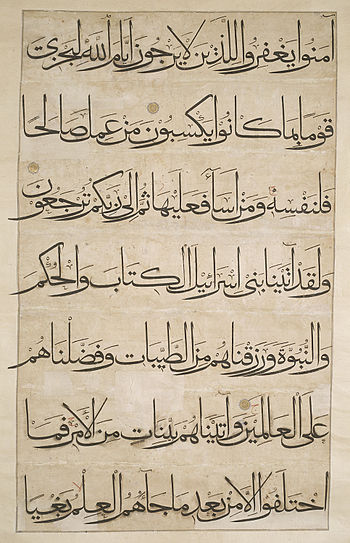 آمنوا يغفروا للذين لا يرجون أيام الله ليجزي
قوما بما كانوا يكسبون من عمل صالحا
فلنفسه ومن أساء فعليها ثم إلى ربكم ترجعون
ولقد آتينا بني اسرائيل الكتاب والحكم
والنبوة ورزقناهم من الطيبات وفضلناهم
على العالمين وآتيناهم بينات من الأمر فما
اختلفوا إلا من بعد ما جآءهم العلم بغيا